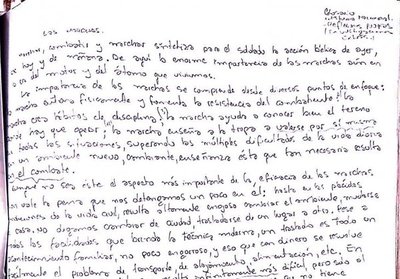 LAS MARCHAS.
combatir y marchar sintetiza para el soldado la acción bélica de ayer,
de hoy y de mañana. De aquí la enorme importancia de las marchas aún en
era del motor y del átomo que vivimos.
La importancia de las marchas se comprende desde diversos puntos de enfoque:
marcha física y fomenta la resistencia del combatiente; la
marcha crea hábitos de disciplina; la marcha ayuda a conocer bien el terreno
que hay que operar; la marcha enseña a la tropa a valerse por sí misma
todas las situaciones, superando las múltiples dificultades de la vida diaria
en un ambiente nuevo, cambiante, enseñanza ésta que tan necesaria resulta
en el combate.
Aunque no sea éste el aspecto más importante de la eficacia de las marchas
vale la pena que nos detengamos un poco en él: hasta en las plácidas
de la vida civil, resulta altamente enojoso cambiar el ambiente, mudarse
casa, no digamos cambiar de ciudad, trasladarse de un lugar a otro, pese a
todas las facilidades que brinda la técnica moderna, un traslado es todo un
acontecimiento familiar, no poco engorroso, y eso que con dinero se resuelve
fácilmente el problema de transporte de alojamiento, alimentación, etc., En
infinitamente más difícil pero sólo el